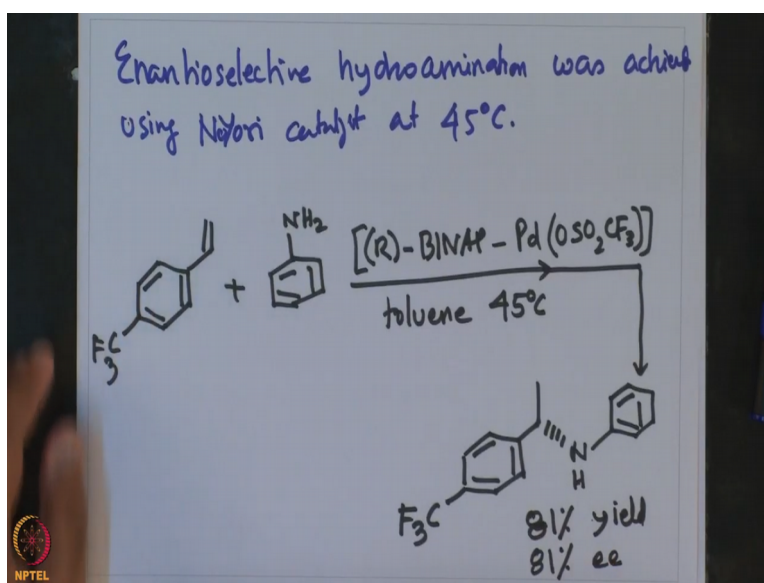 Enantioselective hydroamination was achieved
using Noyori catalyst at 45°C.
NH₂
[(R)-BINAP-Pd(OSO₂CF₃)]
+
toluene 45°C
F₃C
N
H
F₃C
81% yield
81% ee
NPTEL